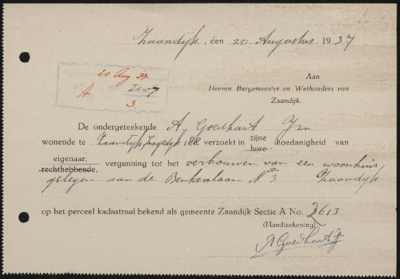 Zaandijk, den 20 Augustus 1937
20 Aug. 37
A 2607
3.
Aan
Heeren Burgemeester en Wethouders van
Zaandijk.
De ondergeteekende A. Goedhart Jzn
wonende te Zaandijk, verzoekt in zijne hare hoedanigheid van
eigenaar,
rechthebbende, vergunning tot het verbouwen van een woonhuis,
gelegen aan de Beukenlaan No 3 Zaandijk
op het perceel kadastraal bekend als gemeente Zaandijk Sectie A No. 2613
(Handteekening)
A Goedhart Jz